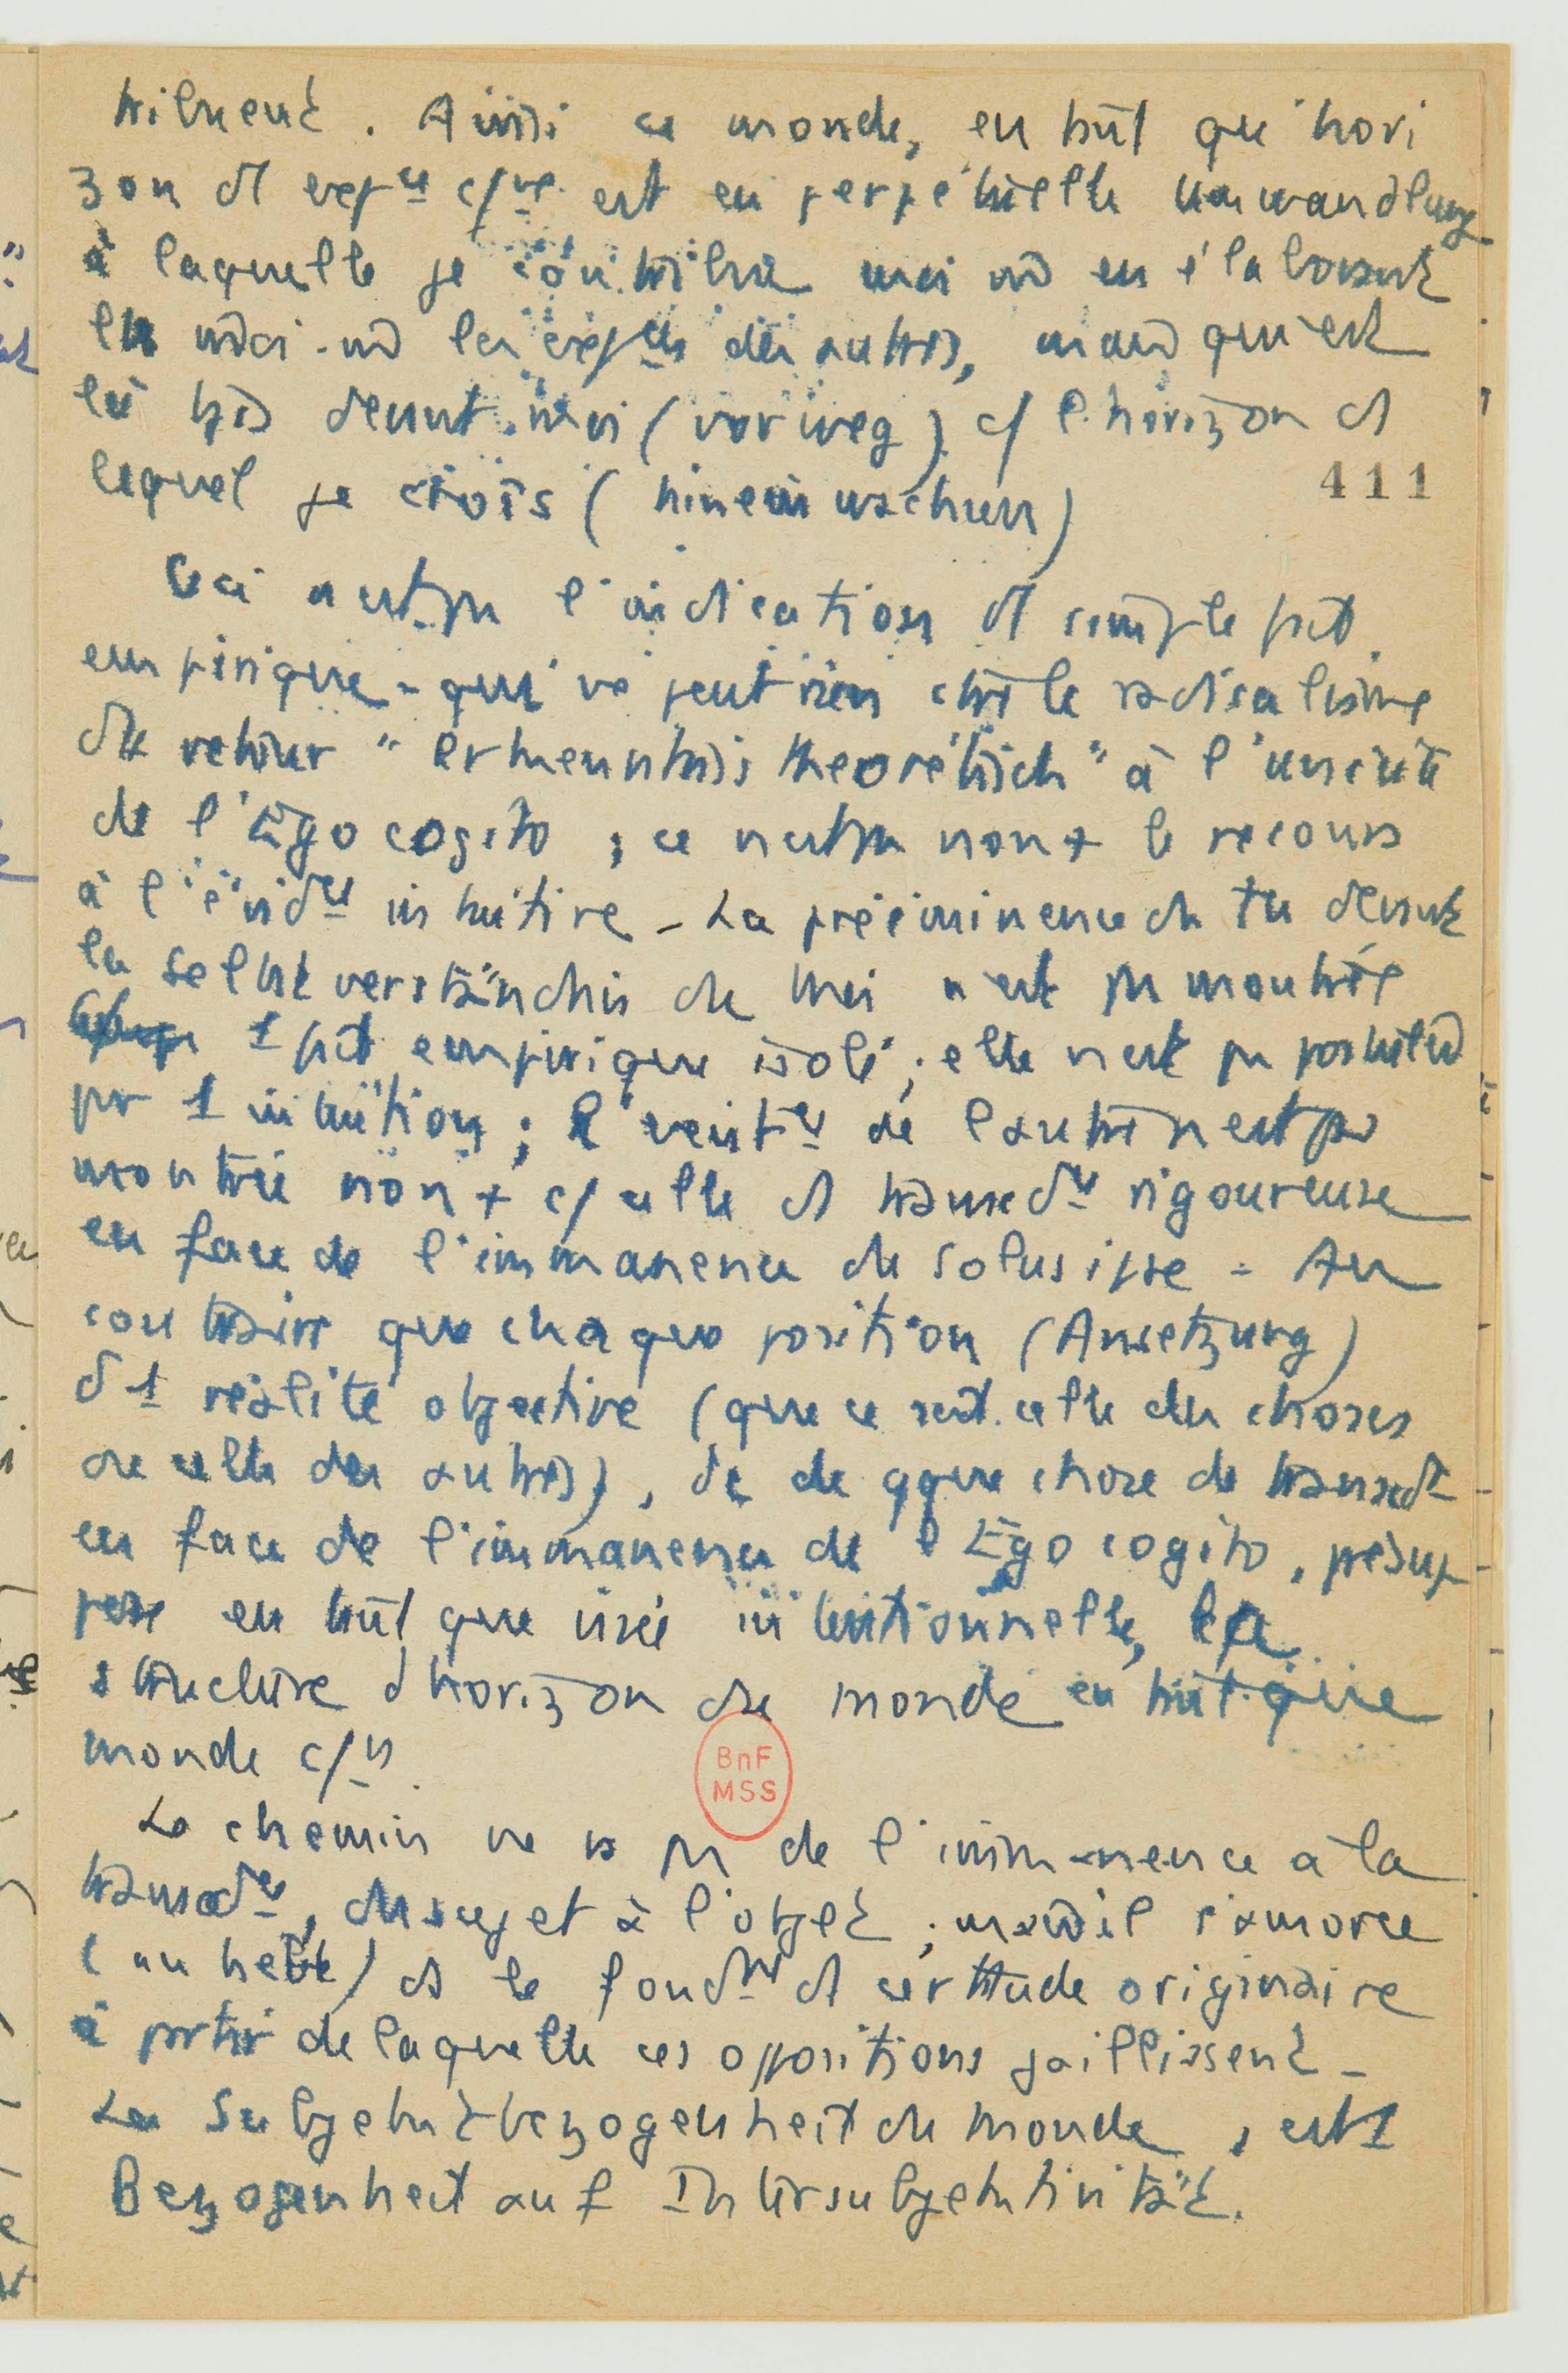 tribuent. Ainsi ce monde, en tant qu'hori
zon d' expce c/ne est en perpétuelle Umwandlung
à laquelle je contribue moi m̂ en élaborant
en moi-m̂ les expces des autres, mais qui est
là tjs devant moi (vorweg) c/ l'horizon ds
lequel je croîs (hineinwachsen)
411
Ceci n'est pas l'indication d' simple fait
empirique - qui ne peut rien ctre le radicalisme
du retour "erkenntnis theorétisch" à l'unicité
de l'Ego cogito ; ce n'est pas non + le recours
à l'évidce intuitive - La prééminence du Tu devant
la Selbstverständnis du Moi n'est pas montrée
1 fait empirique isolé ; elle n'est pas postulée
par 1 intuition ; l' de l'autre n'est pas
montrée non + c/ celle d' transcdce rigoureuse
en face de l'immanence du solus ipse - Au
contraire que chaque position (Ansetzung)
d'1 réalité objective (que ce soit celle des choses
ou celle des autres), dc de qque chose de transcdt
en face de l'immanence de l'Ego cogito, présup
pose en tant que visée intentionnelle, la
structure d'horizon du monde en tant que
monde c/n
BnF
MSS
Le chemin ne va pas de l'immanence à la
transcdce, du sujet à l'objet ; mais il s'amorce
(anhebt) ds le fondmt d' certitude originaire
à partir de laquelle ces oppositions jaillissent -
La Subjektbezogenheit du monde, est 1
Bezogenheit auf Intersubjektivität.